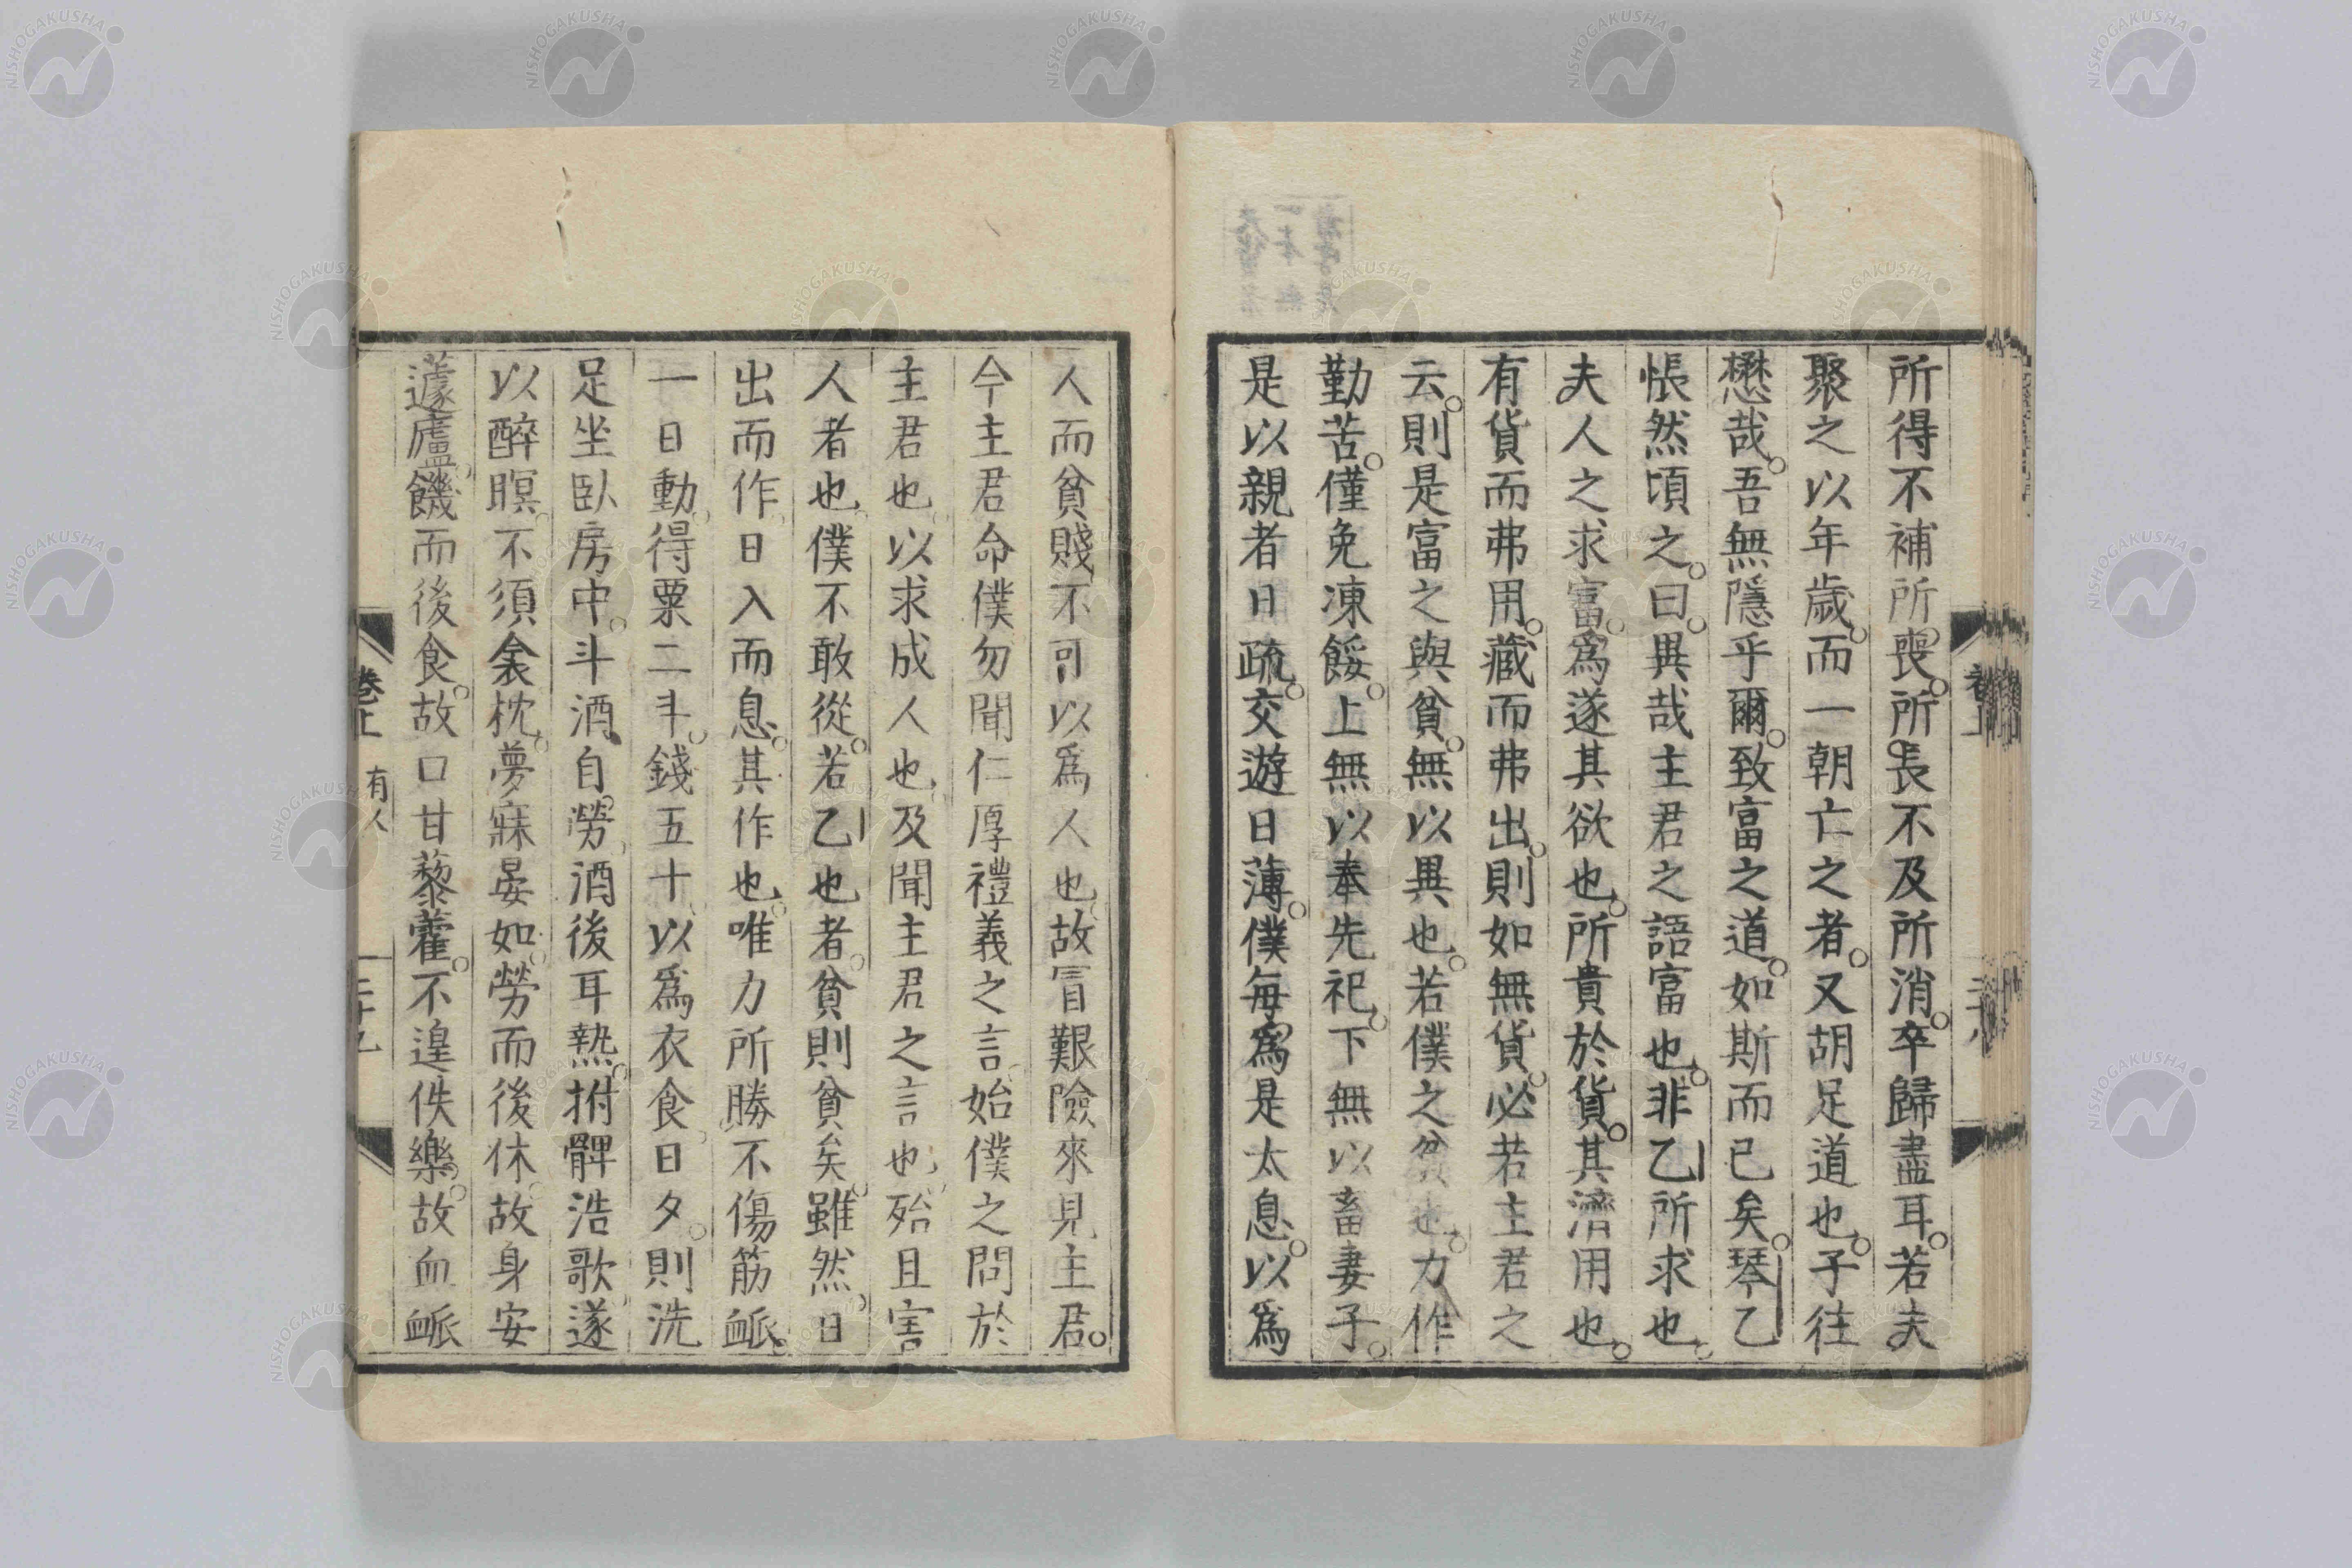 所得不補所喪。所長不及所消。卒歸盡耳。若夫
聚之以年歲。而一朝亡之者。又胡足道也。子往
懋哉。吾無隱乎爾。致富之道。如斯而已矣。琴乙
悵然頃之。曰。異哉主君之語富也。非乙所求也。
夫人之求富。爲遂其欲也。所貴於貨。其濟用也。
有貨而弗用。藏而弗出。則如無貨。必若主君之
云。則是富之與貧。無以異也。若僕之貧也。力作
勤苦。僅免凍餒。上無以奉先祀。下無以畜妻子。
是以親者日疏。交遊日薄。僕每爲是太息。以爲
人而貧賤不可以爲人也。故冒艱險來見主君。
今主君命僕勿聞仁厚禮義之言。始僕之問於
主君也。以求成人也。及聞主君之言也。殆且害
人者也。僕不敢從。若乙也者。貧則貧矣。雖然。日
出而作。日入而息。其作也。唯力所勝。不傷筋衇。
一日動。得粟二斗。錢五十。以爲衣食。日夕。則洗
足坐臥房中。斗酒自勞。酒後耳熱。拊髀浩歌。遂
以醉瞑。不須衾枕。夢寐晏如。勞而後休。故身安
蘧廬。饑而後食。故口甘藜藿。不遑佚樂。故血衇
卷上
有人
三十九
NISHOGAKUSHA